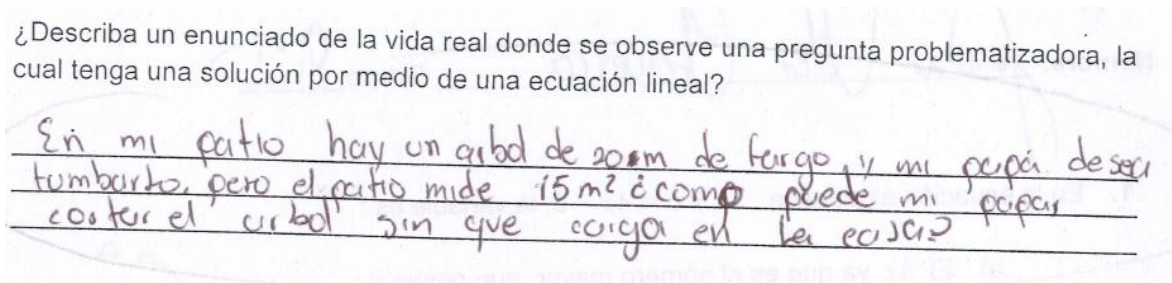 ¿Describa un enunciado de la vida real donde se observe una pregunta problematizadora, la
cual tenga una solución por medio de una ecuación lineal?
En mi patio hay un arbol de 20 m de largo, y mi papá desea
tumbarlo, pero el patio mide 15 m² ¿como puede mi papá
cortar el arbol sin que caiga en la casa?